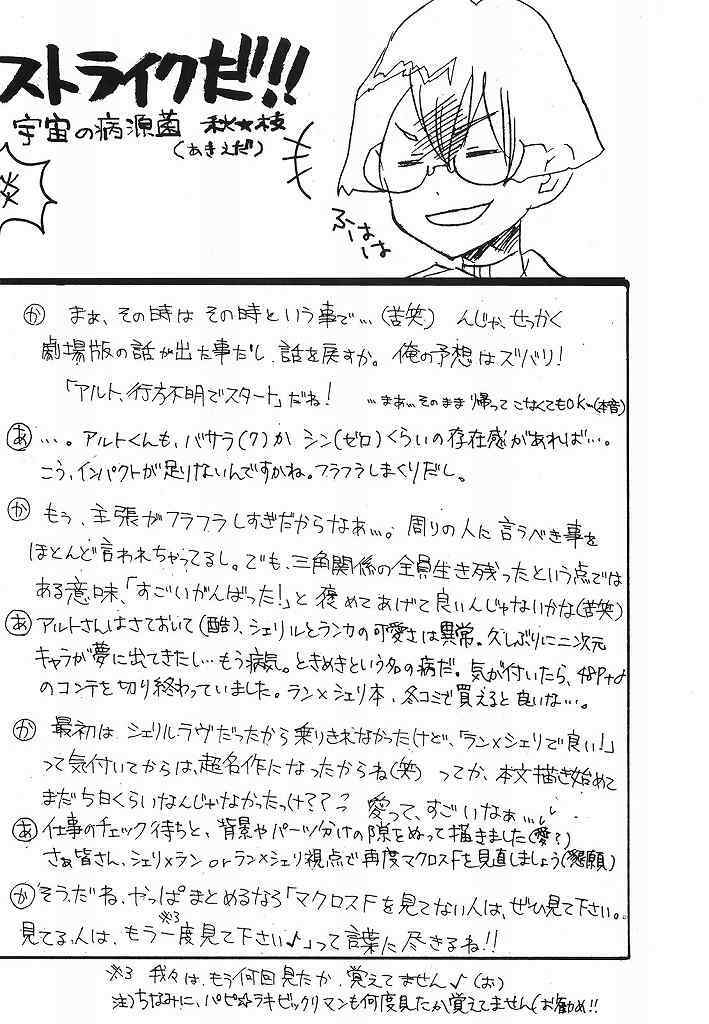 ストライクだ!!
宇宙の病源菌 秋★枝
(あきえだ)
炎
ふーはは
か まぁ、その時はその時という事で…(苦笑) んじゃ、せっかく
劇場版の話が出た事だし、話を戻すか。俺の予想はズバリ!
「アルト、行方不明でスタート」だね! …まぁ…そのまま帰ってこなくてもOK…(本音)
あ …。アルトくんも、バサラ(7)か シン(ゼロ)くらいの存在感があれば…。
こう、インパクトが足りないんですかね。フラフラしまくりだし。
か もぅ、主張がフラフラしすぎだからなぁ…。周りの人に言うべき事を
ほとんど言われちゃってるし。でも、三角関係の全員生き残ったという点では
ある意味、「すごいがんばった!」と褒めてあげて良いんじゃないかな(苦笑)
あ アルトさんはさておいて(酷)、シェリルとランカの可愛さは異常。久しぶりに二次元
キャラが夢に出てきたし…もう病気。ときめきという名の病だ。気が付いたら、48P+α
のコンテを切り終わっていました。ラン×シェリ本、冬コミで買えると良いな…。
か 最初はシェリルラヴだったから乗りきれなかったけど、「ラン×シェリで良い!」
って気付いてからは、超名作になったからね(笑) ってか、本文描き始めて
まだ5日くらいなんじゃなかったっけ??? 愛って、すごいなぁ…
あ 仕事のチェック待ちと、背景やパーツ分けの隙をぬって描きました(愛?)
さぁ皆さん、シェリ×ラン or ラン×シェリ視点で再度マクロスFを見直しましょう(懇願)
か そうだね、やっぱまとめるなら「マクロスFを見てない人は、ぜひ見て下さい。
見てる人は、もう一度見て下さい♪」って言葉に尽きるね!!
※3
※3 我々は、もう何回見たか、覚えてません♪(お)
注)ちなみに、パピ☆ラキビックリマンも何度見たか覚えてません(お勧め!!